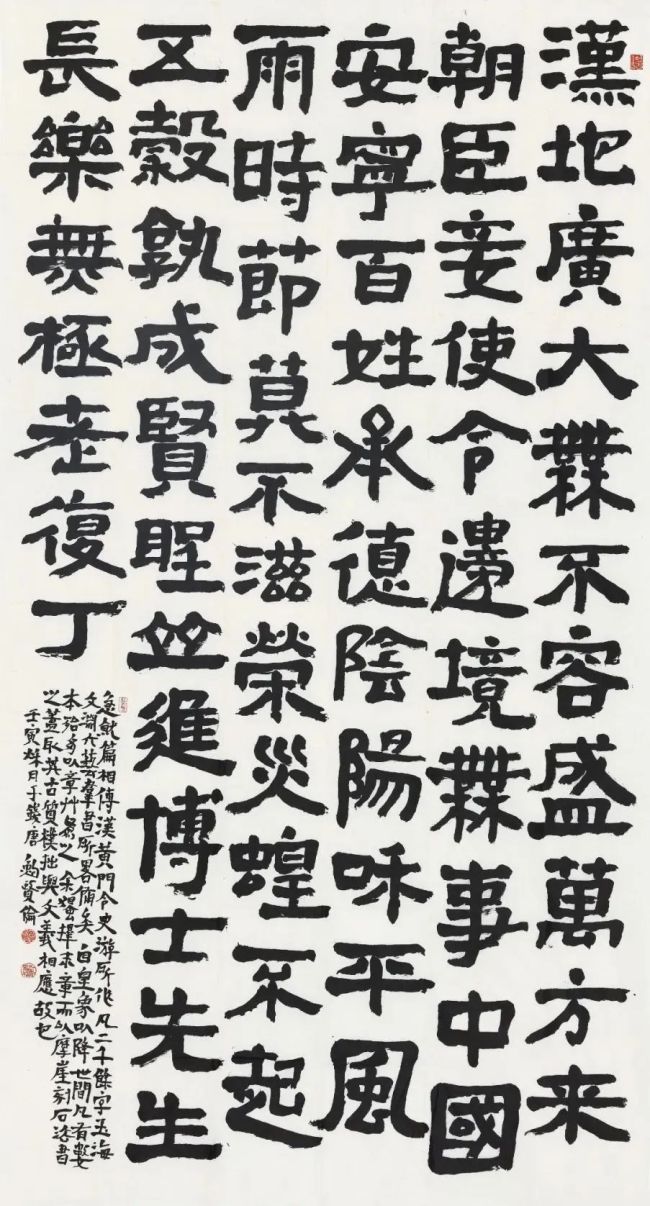 漢地廣大無不容盛萬方来
朝臣妾使令邊境無事中國
安寧百姓承德陰陽咊平風
雨時節莫不滋榮災蝗不起
五穀孰成賢聖並進博士先生
長樂無極老復丁
急就篇相傳漢黃門令史游所作凡二千餘字玉海
文淵六藝羣書所畧備矣自皇象以降世間凡有數
本殆多以章艸爲之余獨擇章而以摩崖刻石法書
之蓋取其古質樸拙與文義相應故也
壬寅秋日于錢唐鮑賢倫